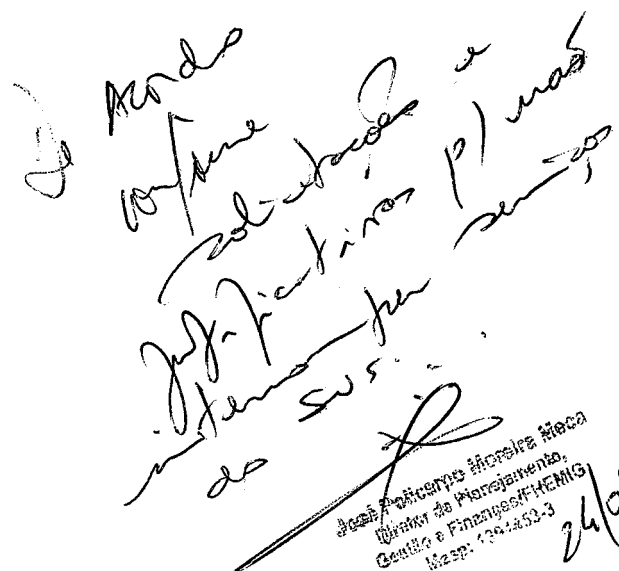 De Acordo
conforme
solicitações e
justificativas p/ não
interromper serviços
do SUS.
José Policarpo Moreira Meca
Diretor de Planejamento,
Gestão e Finanças/FHEMIG
Masp:
24/0